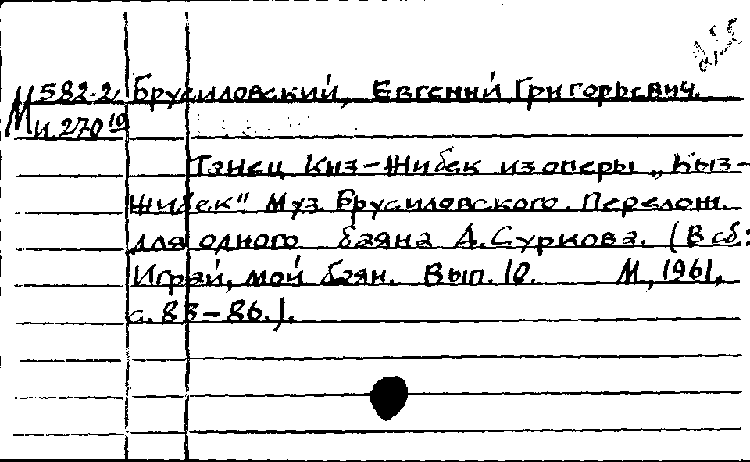 М 582-2 Брусиловский, Евгений Григорьевич.
И 270 10
Танец Кыз-Жибек из оперы „Кыз-
Жибек". Муз. Брусиловского. Перелож.
для одного баяна А. Суркова. (В сб.:
Играй, мой баян. Вып. 10. М., 1961,
с. 83-86.).